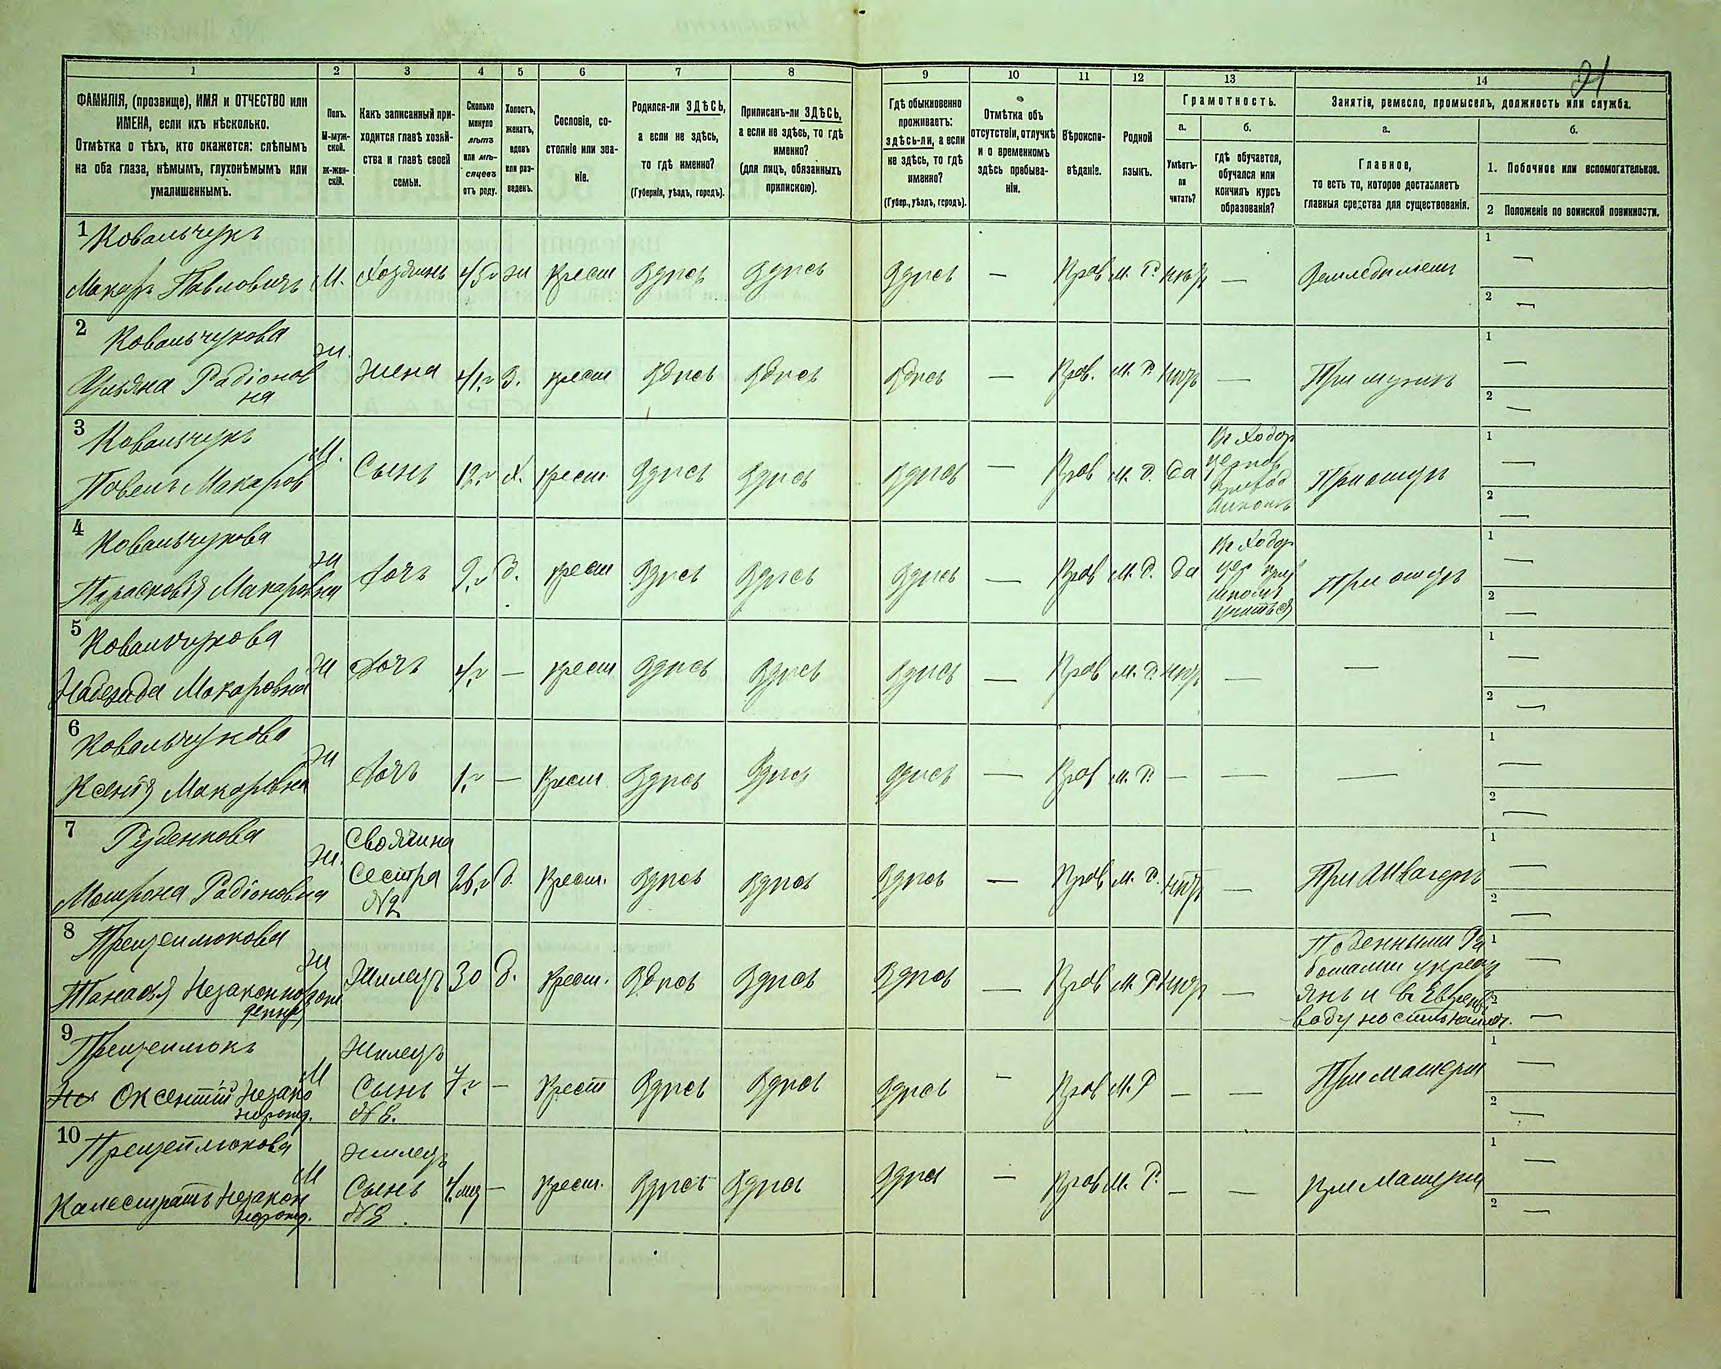 21
1 2 3 4 5 6 7 8 9 10 11 12 13 14
ФАМИЛІЯ, (прозвище), ИМЯ и ОТЧЕСТВО или
ИМЕНА, если ихъ нѣсколько.
Отмѣтка о тѣхъ, кто окажется: слѣпымъ
на оба глаза, нѣмымъ, глухонѣмымъ или
умалишеннымъ.
Полъ.
М-муж-
ской.
Ж-жен-
скій.
Какъ записанный при-
ходится главѣ хозяй-
ства и главѣ своей
семьи.
Сколько
минуло
лѣтъ
или мѣ-
сяцевъ
отъ роду.
Холостъ,
женатъ,
вдовъ
или раз-
веденъ.
Сословіе, со-
стояніе или зва-
ніе.
Родился-ли ЗДѢСЬ,
а если не здѣсь,
то гдѣ именно?
(Губернія, уѣздъ, городъ).
Приписанъ-ли ЗДѢСЬ,
а если не здѣсь, то гдѣ
именно?
(для лицъ, обязанныхъ
припискою).
Гдѣ обыкновенно
проживаетъ:
здѣсь-ли, а если
не здѣсь, то гдѣ
именно?
(Губер., уѣздъ, городъ).
Отмѣтка объ
отсутствіи, отлучкѣ
и о временномъ
здѣсь пребыва-
ніи.
Вѣроиспо-
вѣданіе.
Родной
языкъ.
Грамотность.
а.
Умѣетъ-
ли
читать?
б.
гдѣ обучается,
обучался или
кончилъ курсъ
образованія?
Занятіе, ремесло, промыселъ, должность или служба.
а.
Главное,
то есть то, которое доставляетъ
главныя средства для существованія.
б.
1. Побочное или вспомогательное.
2 Положеніе по воинской повинности.
1 Ковальчукъ
Макаръ Павловичъ М. Хозяинъ 45г ж Крест Здѣсь Здѣсь Здѣсь — Прав М. Р. нѣтъ — Земледѣлецъ 1 — 2 —
2 Ковальчукова
Ульяна Радіонов
на ж. Жена 41г З. крест Здѣсь Здѣсь Здѣсь — Прав. М. Р. нѣтъ — При мужѣ 1 — 2 —
3 Ковальчукъ
Павелъ Макаров М. Сынъ 12г Х. крест Здѣсь Здѣсь Здѣсь — Прав М. Р. да
Въ Ходор
церков
приход
школѣ
При отцѣ 1 — 2 —
4 Ковальчукова
Парасковія Макаровна ж Дочь 9г д. крест Здѣсь Здѣсь Здѣсь — Прав М. Р. да
Въ Ходор
цер прих
школѣ
учиться
При отцѣ 1 — 2 —
5 Ковальчукова
Надежда Макаровна ж Дочь 4г — крест Здѣсь Здѣсь Здѣсь — Прав М. Р. нѣтъ — — 1 — 2 —
6 Ковальчукова
Ксенія Макаровна ж Дочь 1г — Крест Здѣсь Здѣсь здѣсь — Прав М. Р. — — — 1 — 2 —
7 Руденкова
Матрона Радіоновна ж.
Своячина
Сестра
№2
26г д. Крест. Здѣсь Здѣсь Здѣсь — Прав М. Р. нѣтъ — При Швагеръ 1 — 2 —
8
Танасія Незаконнорож
денная ж Жилецъ 30 д. Крест. Здѣсь Здѣсь Здѣсь — Прав М. Р нѣтъ —
Поденными Ра
ботами у крест
янъ и в Еврей
воду носить 1 — 2 —
9
Оксентій Незако
норожд. М
Жилецъ
Сынъ
№8.
7г — Крест Здѣсь Здѣсь Здѣсь — Прав М. Р — — При Матери 1 — 2 —
10
Калестратъ Незакон
норожд. М
Жилецъ
Сынъ
№8.
4 мѣ — Крест. Здѣсь Здѣсь Здѣсь — Прав М. Р. — — При Матери 1 — 2 —